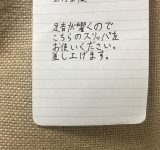 足音が響くので
こちらのスリッパを
お使いください。
差し上げます。